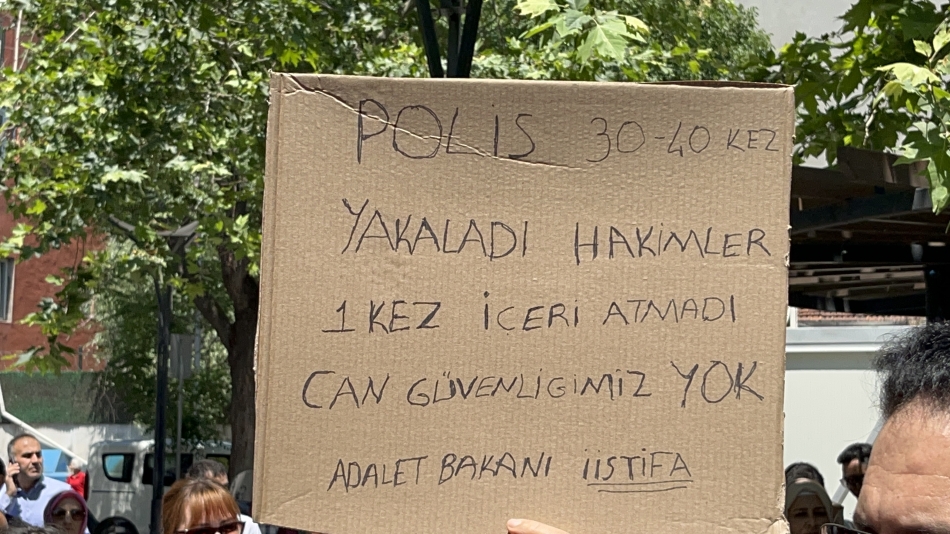 POLİS 30-40 KEZ
YAKALADI HAKİMLER
1 KEZ İÇERİ ATMADI
CAN GÜVENLİGİMİZ YOK
ADALET BAKANI İİSTİFA